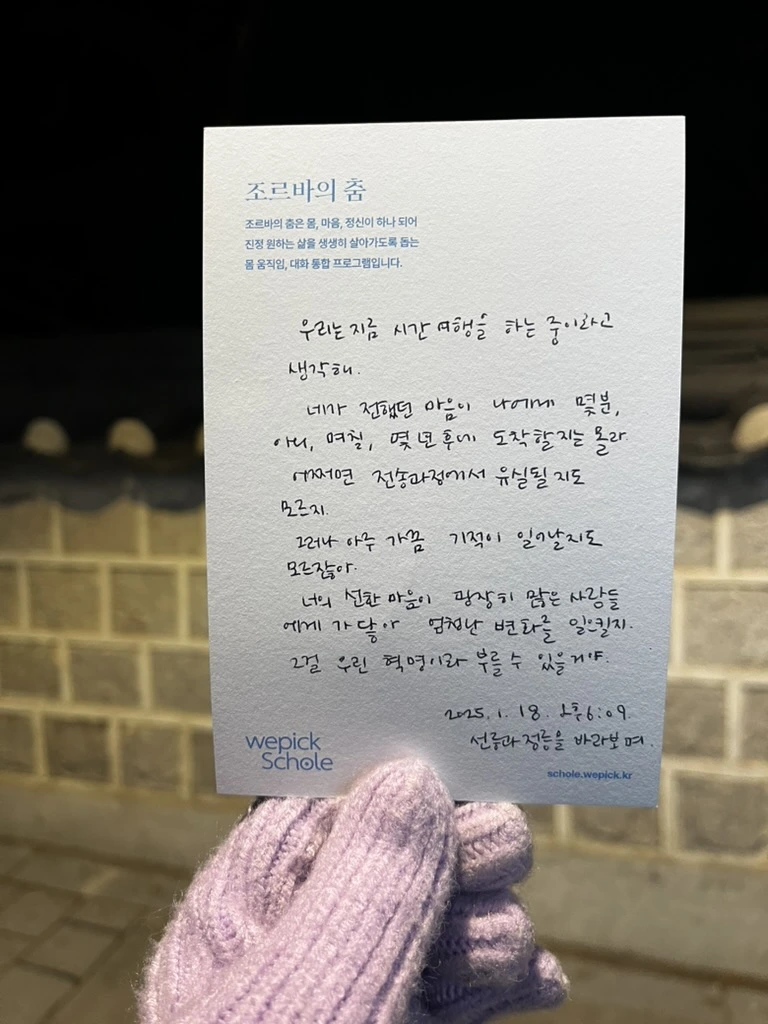 조르바의 춤
조르바의 춤은 몸, 마음, 정신이 하나 되어
진정 원하는 삶을 생생히 살아가도록 돕는
몸 움직임, 대화 통합 프로그램입니다.
우리는 지금 시간 여행을 하는 중이라고
생각해.
네가 전했던 마음이 나에게 몇분,
아니, 며칠, 몇 년 후에 도착할지는 몰라.
어쩌면 전송과정에서 유실될 지도
모르지.
그러나 아주 가끔 기적이 일어날지도
모르잖아.
너의 선한 마음이 굉장히 많은 사람들
에게 가 닿아 엄청난 변화를 일으킬지.
그걸 우린 혁명이라 부를 수 있을거야.
2025. 1. 18. 오후 6:09.
선릉과 정릉을 바라보며.
wepick
Schole
schole.wepick.kr